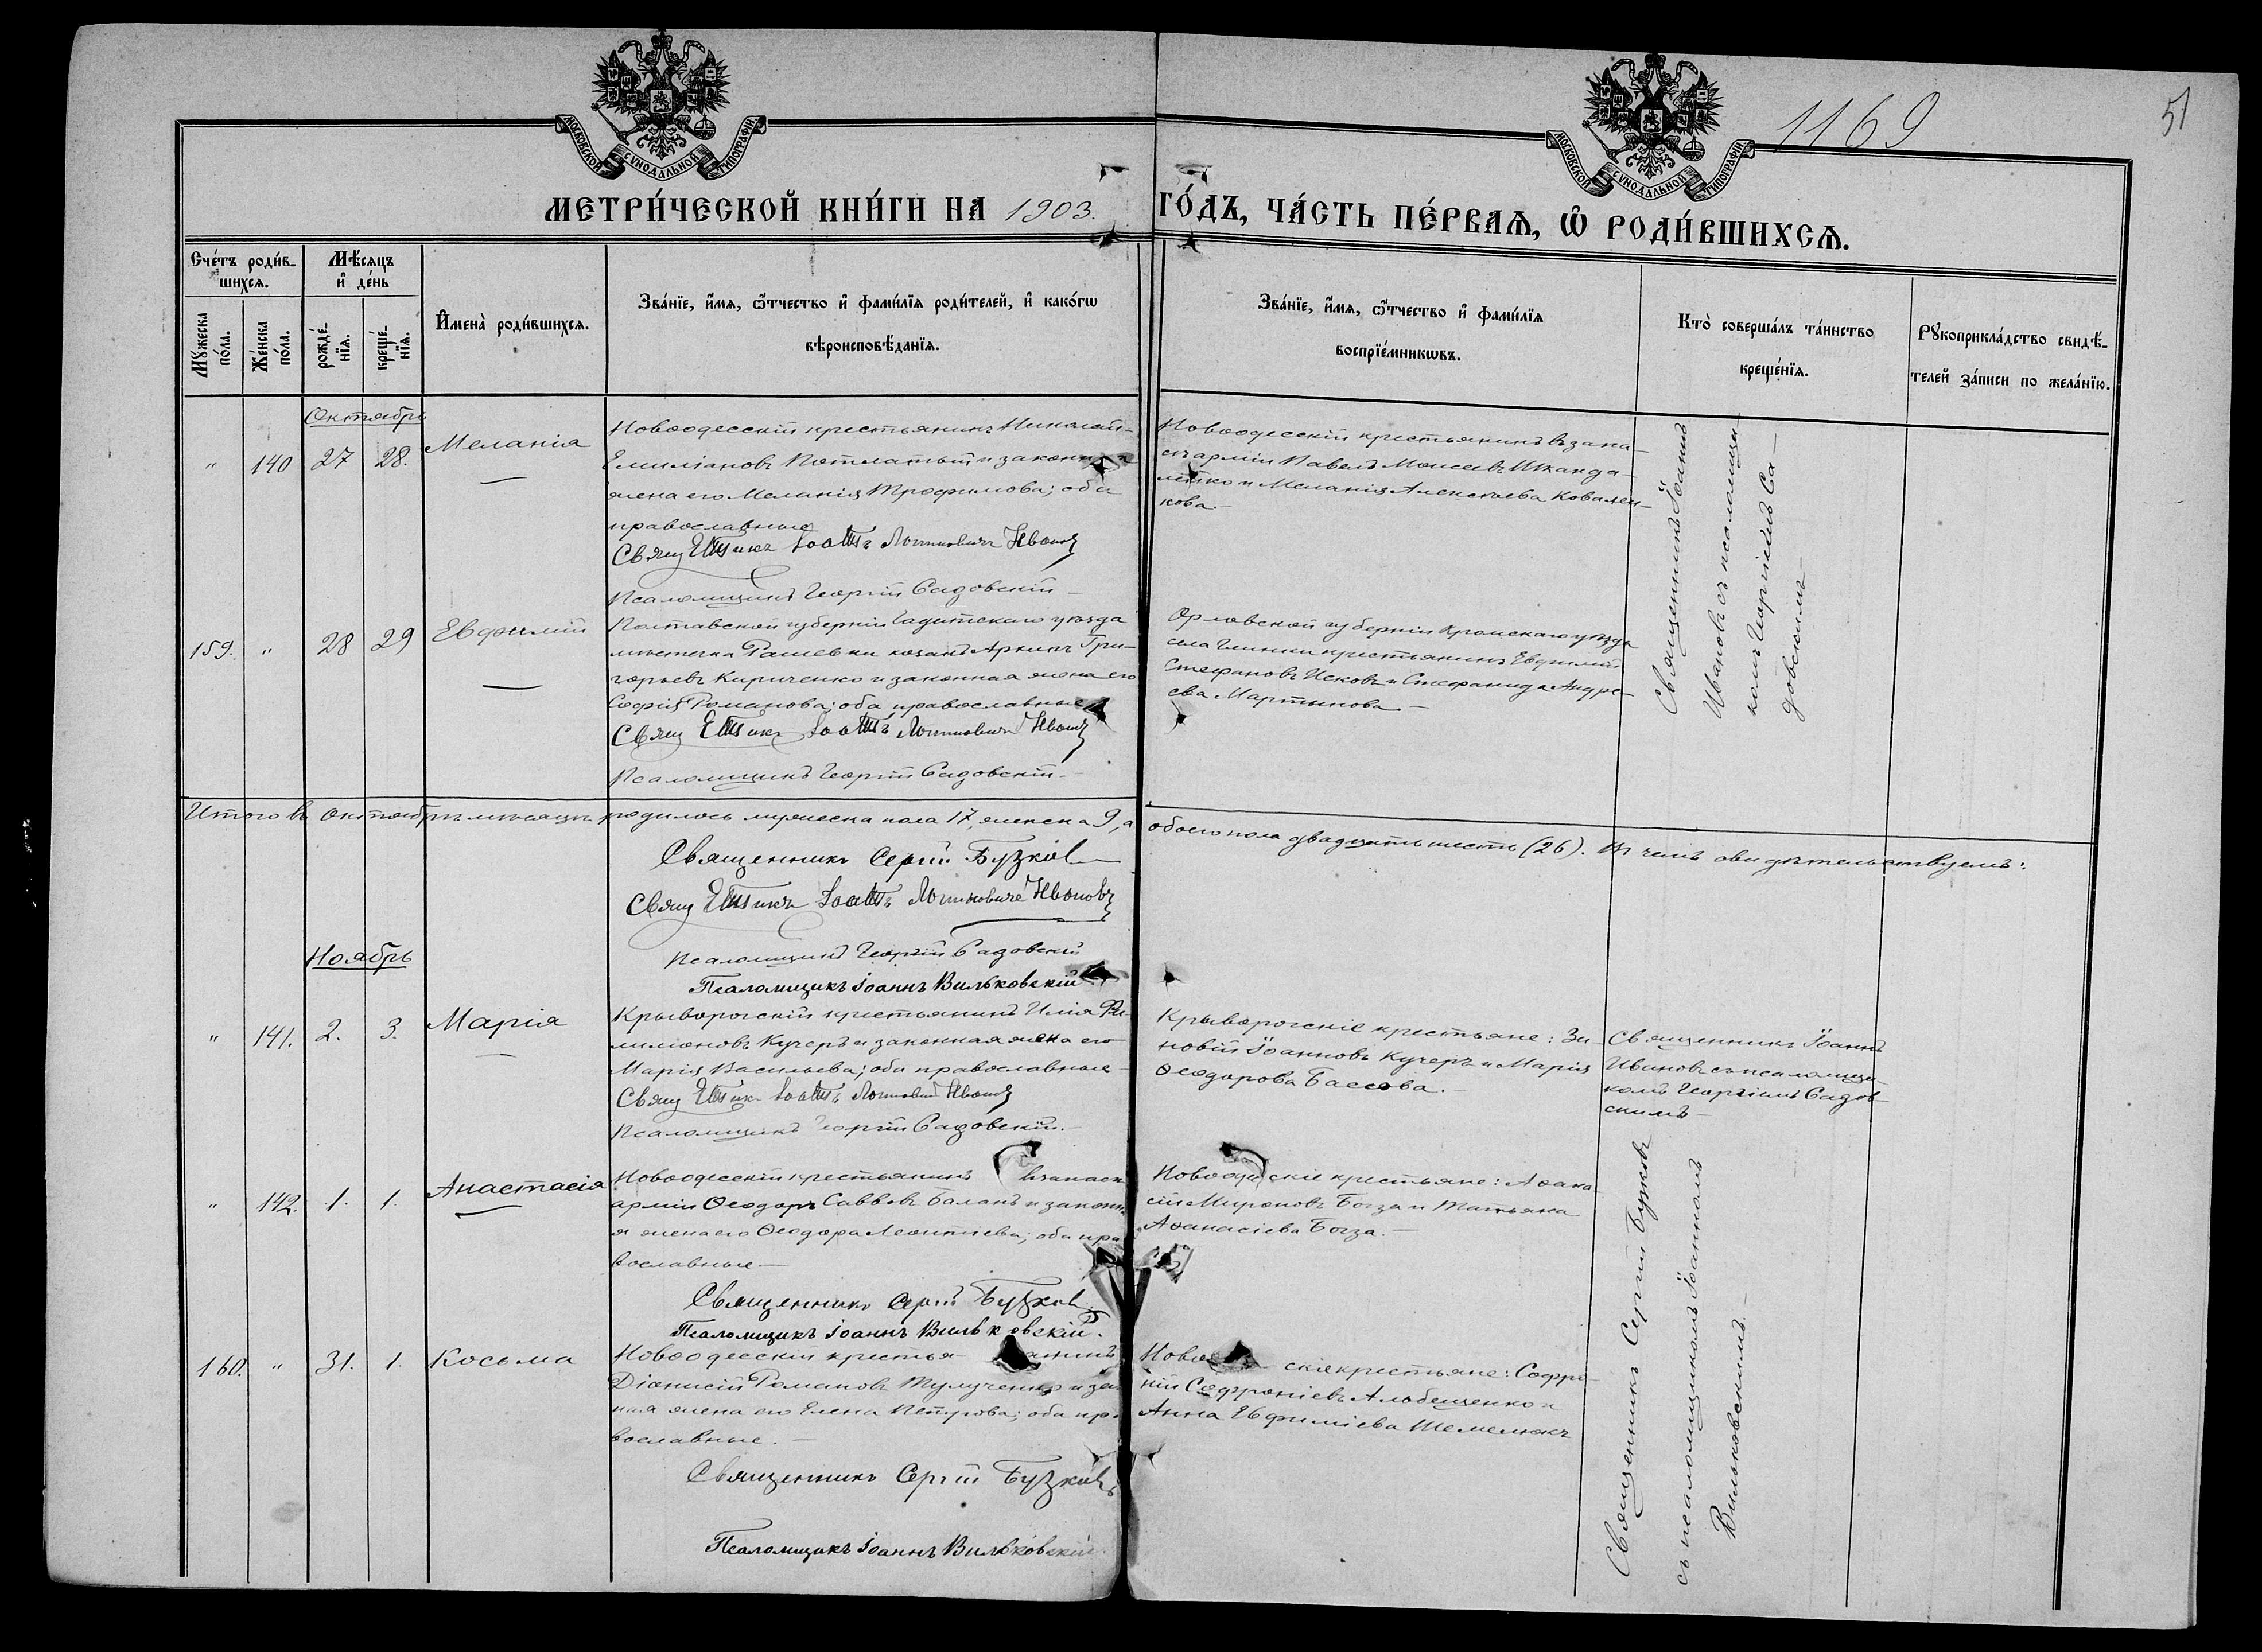 1169
51
МОСКОВСКОЙ СѴНОДАЛЬНОЙ ТИПОГРАФІИ
МОСКОВСКОЙ СѴНОДАЛЬНОЙ ТИПОГРАФІИ
МЕТРИ́ЧЕСКОЙ КНИ́ГИ НА 1903. ГО́ДЪ, ЧА́СТЬ ПЕ́РВАѦ, Ѡ҆ РОДИ́ВШИХСѦ.
Сче́тъ роди́в-
шихсѧ.
Мѣ́сѧцъ
и҆ де́нь
Мꙋ́жеска
по́ла.
Же́нска
по́ла.
рожде́-
нїѧ.
креще́-
нїѧ.
И҆мена̀ роди́вшихсѧ.
Зва́нїе, и҆́мѧ, ѻ҆́тчество и҆ фами́лїѧ роди́телей, и҆ како́гѡ
вѣроисповѣ́данїѧ.
Зва́нїе, и҆́мѧ, ѻ҆́тчество и҆ фами́лїѧ
воспрїе́мникѡвъ.
Кто̀ соверша́лъ та́инство
креще́нїѧ.
Рꙋкоприкла́дство свидѣ́-
телей за́писи по жела́нїю.
Октябрь
" 140 27 28. Меланія
Новоодесскій крестьянинъ Николай
Емиліановъ и законная
жена его Меланія Трофимова; оба
православные
Священникъ Іоаннъ Логиновичъ Ивановъ
Псаломщикъ Георгій Садовскій
Новоодесскій крестьянинъ въ запа-
сѣ арміи Павелъ Моисеевъ Шканда-
и Меланія Алексѣева Ковален-
кова.
Священникъ Іоаннъ
Ивановъ съ псаломщи-
комъ Георгіемъ Са-
довскимъ
159. " 28 29 Евфимій
Полтавской губерніи Гадятскаго уѣзда
мѣстечка Рашевки козакъ Архипъ Гри-
горьевъ Кириченко и законная жена его
Софія Романова; оба православные
Священникъ Іоаннъ Логиновичъ Ивановъ
Псаломщикъ Георгій Садовскій
Орловской губерніи Кромскаго уѣзда
села Глинки крестьянинъ Евфимій
Стефановъ и Стефанида Андре-
ева Мартынова
Итого въ Октябрѣ мѣсяцѣ родилось мужеска пола 17, женска 9, а обоего пола двадцать шесть (26). Въ чемъ свидѣтельствуемъ:
Священникъ Сергій Бузковъ
Священникъ Іоаннъ Логиновичъ Ивановъ
Псаломщикъ Георгій Садовскій
Псаломщикъ Іоаннъ Вильковскій
Ноябрь
" 141. 2. 3. Марія
Криворогскій крестьянинъ Илія Фи-
лимоновъ Кучеръ и законная жена его
Марія Васильева; оба православные
Священникъ Іоаннъ Логиновичъ Ивановъ
Псаломщикъ Георгій Садовскій.
Криворогскіе крестьяне: Зи-
новій Іоанновъ Кучеръ и Марія
Ѳеодорова Бассова.
Священникъ Іоаннъ
Ивановъ съ псаломщи-
комъ Георгіемъ Садов-
скимъ
" 142. 1. 1. Анастасія
Новоодесскій крестьянинъ въ запасѣ
арміи Ѳеодоръ Саввовъ Баланъ и законна
я жена его Ѳеодора Леонтіева; оба пра
вославные
Священникъ Сергій Бузковъ
Псаломщикъ Іоаннъ Вильковскій.
Новоодесскіе крестьяне: Аѳана
сій Мироновъ Богза и Татьяна
Аѳанасіева Богза.
Священникъ Сергій Бузковъ
съ псаломщикомъ Іоанномъ
Вильковскимъ.
160. " 31. 1. Косьма
Новоодесскій крестьянинъ
Діонисій Романовъ и зак
ная жена его Елена Петрова; оба пра
вославные.
Священникъ Сергій Бузковъ
Псаломщикъ Іоаннъ Вильковскій
Ново скіе крестьяне: Софро-
ній Софроніевъ и
Анна Евфиміева Шемелюкъ